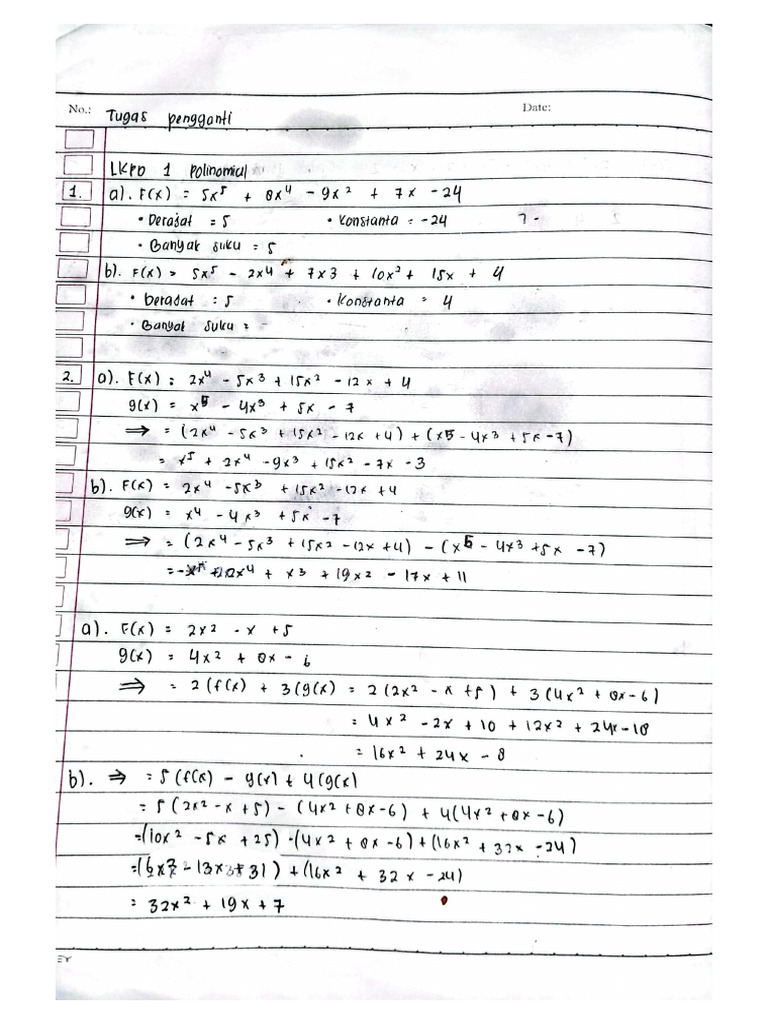 No.: Tugas pengganti Date:
LKPD 1 Polinomial
1. a). F(x) = 5x⁵ + 8x⁴ - 9x² + 7x - 24
• Derajat = 5 • Konstanta = -24 7 -
• Banyak suku = 5
b). F(x) = 5x⁵ - 2x⁴ + 7x3 + 10x² + 15x + 4
• Derajat : 5 • Konstanta = 4
• Banyak suku = -
2. a). F(x) : 2x⁴ - 5x³ + 15x² - 12x + 4
g(x) = x⁵ - 4x³ + 5x - 7
⇒ = (2x⁴ - 5x³ + 15x² - 12x + 4) + (x5 - 4x³ + 5x - 7)
= x⁵ + 2x⁴ - 9x³ + 15x² - 7x - 3
b). F(x) = 2x⁴ - 5x³ + 15x² - 12x + 4
g(x) = x⁴ - 4x³ + 5x - 7
⇒ = (2x⁴ - 5x³ + 15x² - 12x + 4) - (x5 - 4x³ + 5x - 7)
= x⁴ + x³ + 19x² - 17x + 11
a). F(x) = 2x² - x + 5
g(x) = 4x² + 8x - 6
⇒ = 2(f(x) + 3(g(x) = 2(2x² - x + 5) + 3(4x² + 8x - 6)
= 4x² - 2x + 10 + 12x² + 24x - 18
= 16x² + 24x - 8
b). ⇒ = 5(f(x) - g(x) + 4(g(x)
= 5(2x² - x + 5) - (4x² + 8x - 6) + 4(4x² + 8x - 6)
=(10x² - 5x + 25) - (4x² + 8x - 6) + (16x² + 32x - 24)
=(6x² - 13x + 31) + (16x² + 32x - 24)
= 32x² + 19x + 7
EY